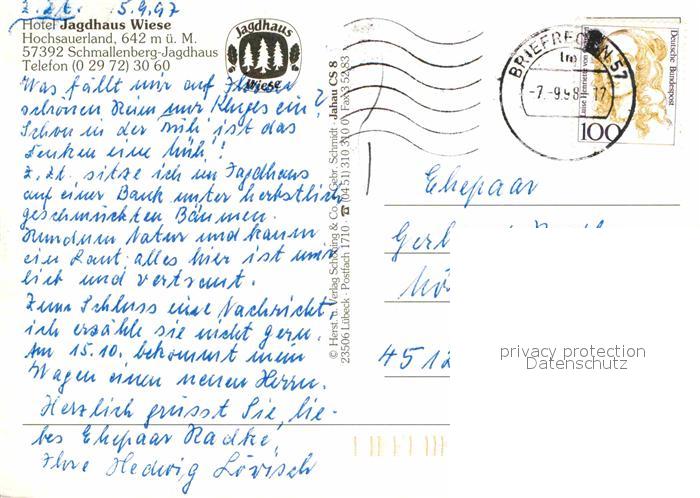 z. Zt. 5.9.97
Hotel Jagdhaus Wiese
Hochsauerland, 642 m ü. M.
57392 Schmallenberg-Jagdhaus
Telefon (0 29 72) 30 60
Jagdhaus
Wiese
Was fällt mir auf
schönen Reim nur Kluges ein?
Schon in der Früh' ist das
Denken eine Müh'!
Z. Zt. sitze ich im Jagdhaus
auf einer Bank unter herbstlich
geschmückten Bäumen.
Rundum Natur und kaum
ein Laut. alles hier ist mir
lieb und vertraut.
Zum Schluss eine Nachricht
ich erzähle sie nicht gern.
Am 15.10. bekommt mein
Wagen einen neuen Herrn.
Herzlich grüsst Sie, lie-
bes Ehepaar Radtke,
Ihre Hedwig
© Herst. u. Verlag Schöning & Co. + Gebr. Schmidt
23506 Lübeck · Postfach 1710 · ☎ (04 51) 310 310
Jahau CS 8
BRIEFREGION 57
-7.-9.98-17
Deutsche Bundespost
100
Ehepaar
4512
privacy protection
Datenschutz